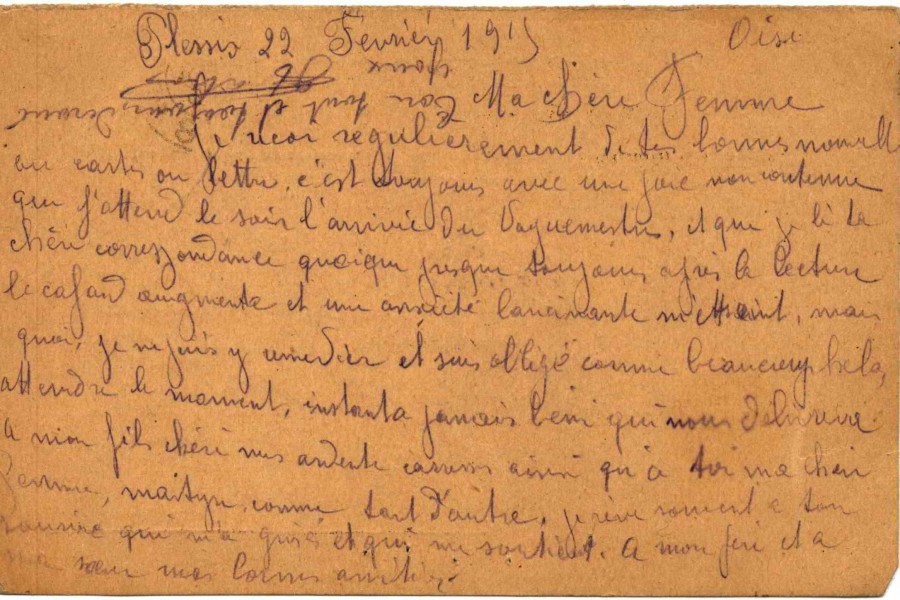 Plessis 22 Fevrier 1915 Oise
Ma chère Femme
Je recoi regulierement de tes bonnes nouvelles
ou cartes ou lettre, c'est toujours avec une joie non contenue
que j'attend le soir l'arrivée du Vaguemestre, et que je li ta
chère correspondance quoique presque toujours après la lecture
le cafard augmente et une anxiété lancinante m'etteint, mais
quoi, je ne puis y remedier et suis obligé comme beaucoup hélas,
attendre le moment, instant a jamais beni qui nous delivrera
A mon fils chéri mes ardente caresses ainsi qu'à toi ma chère
Femme, martyre comme tant d'autre, je rêve souvent a ton
sourire qui m'a grisé et qui me soutient. A mon père et a
ma sœur mes bonnes amitiés.
Ton tout et toujours devoué
époux